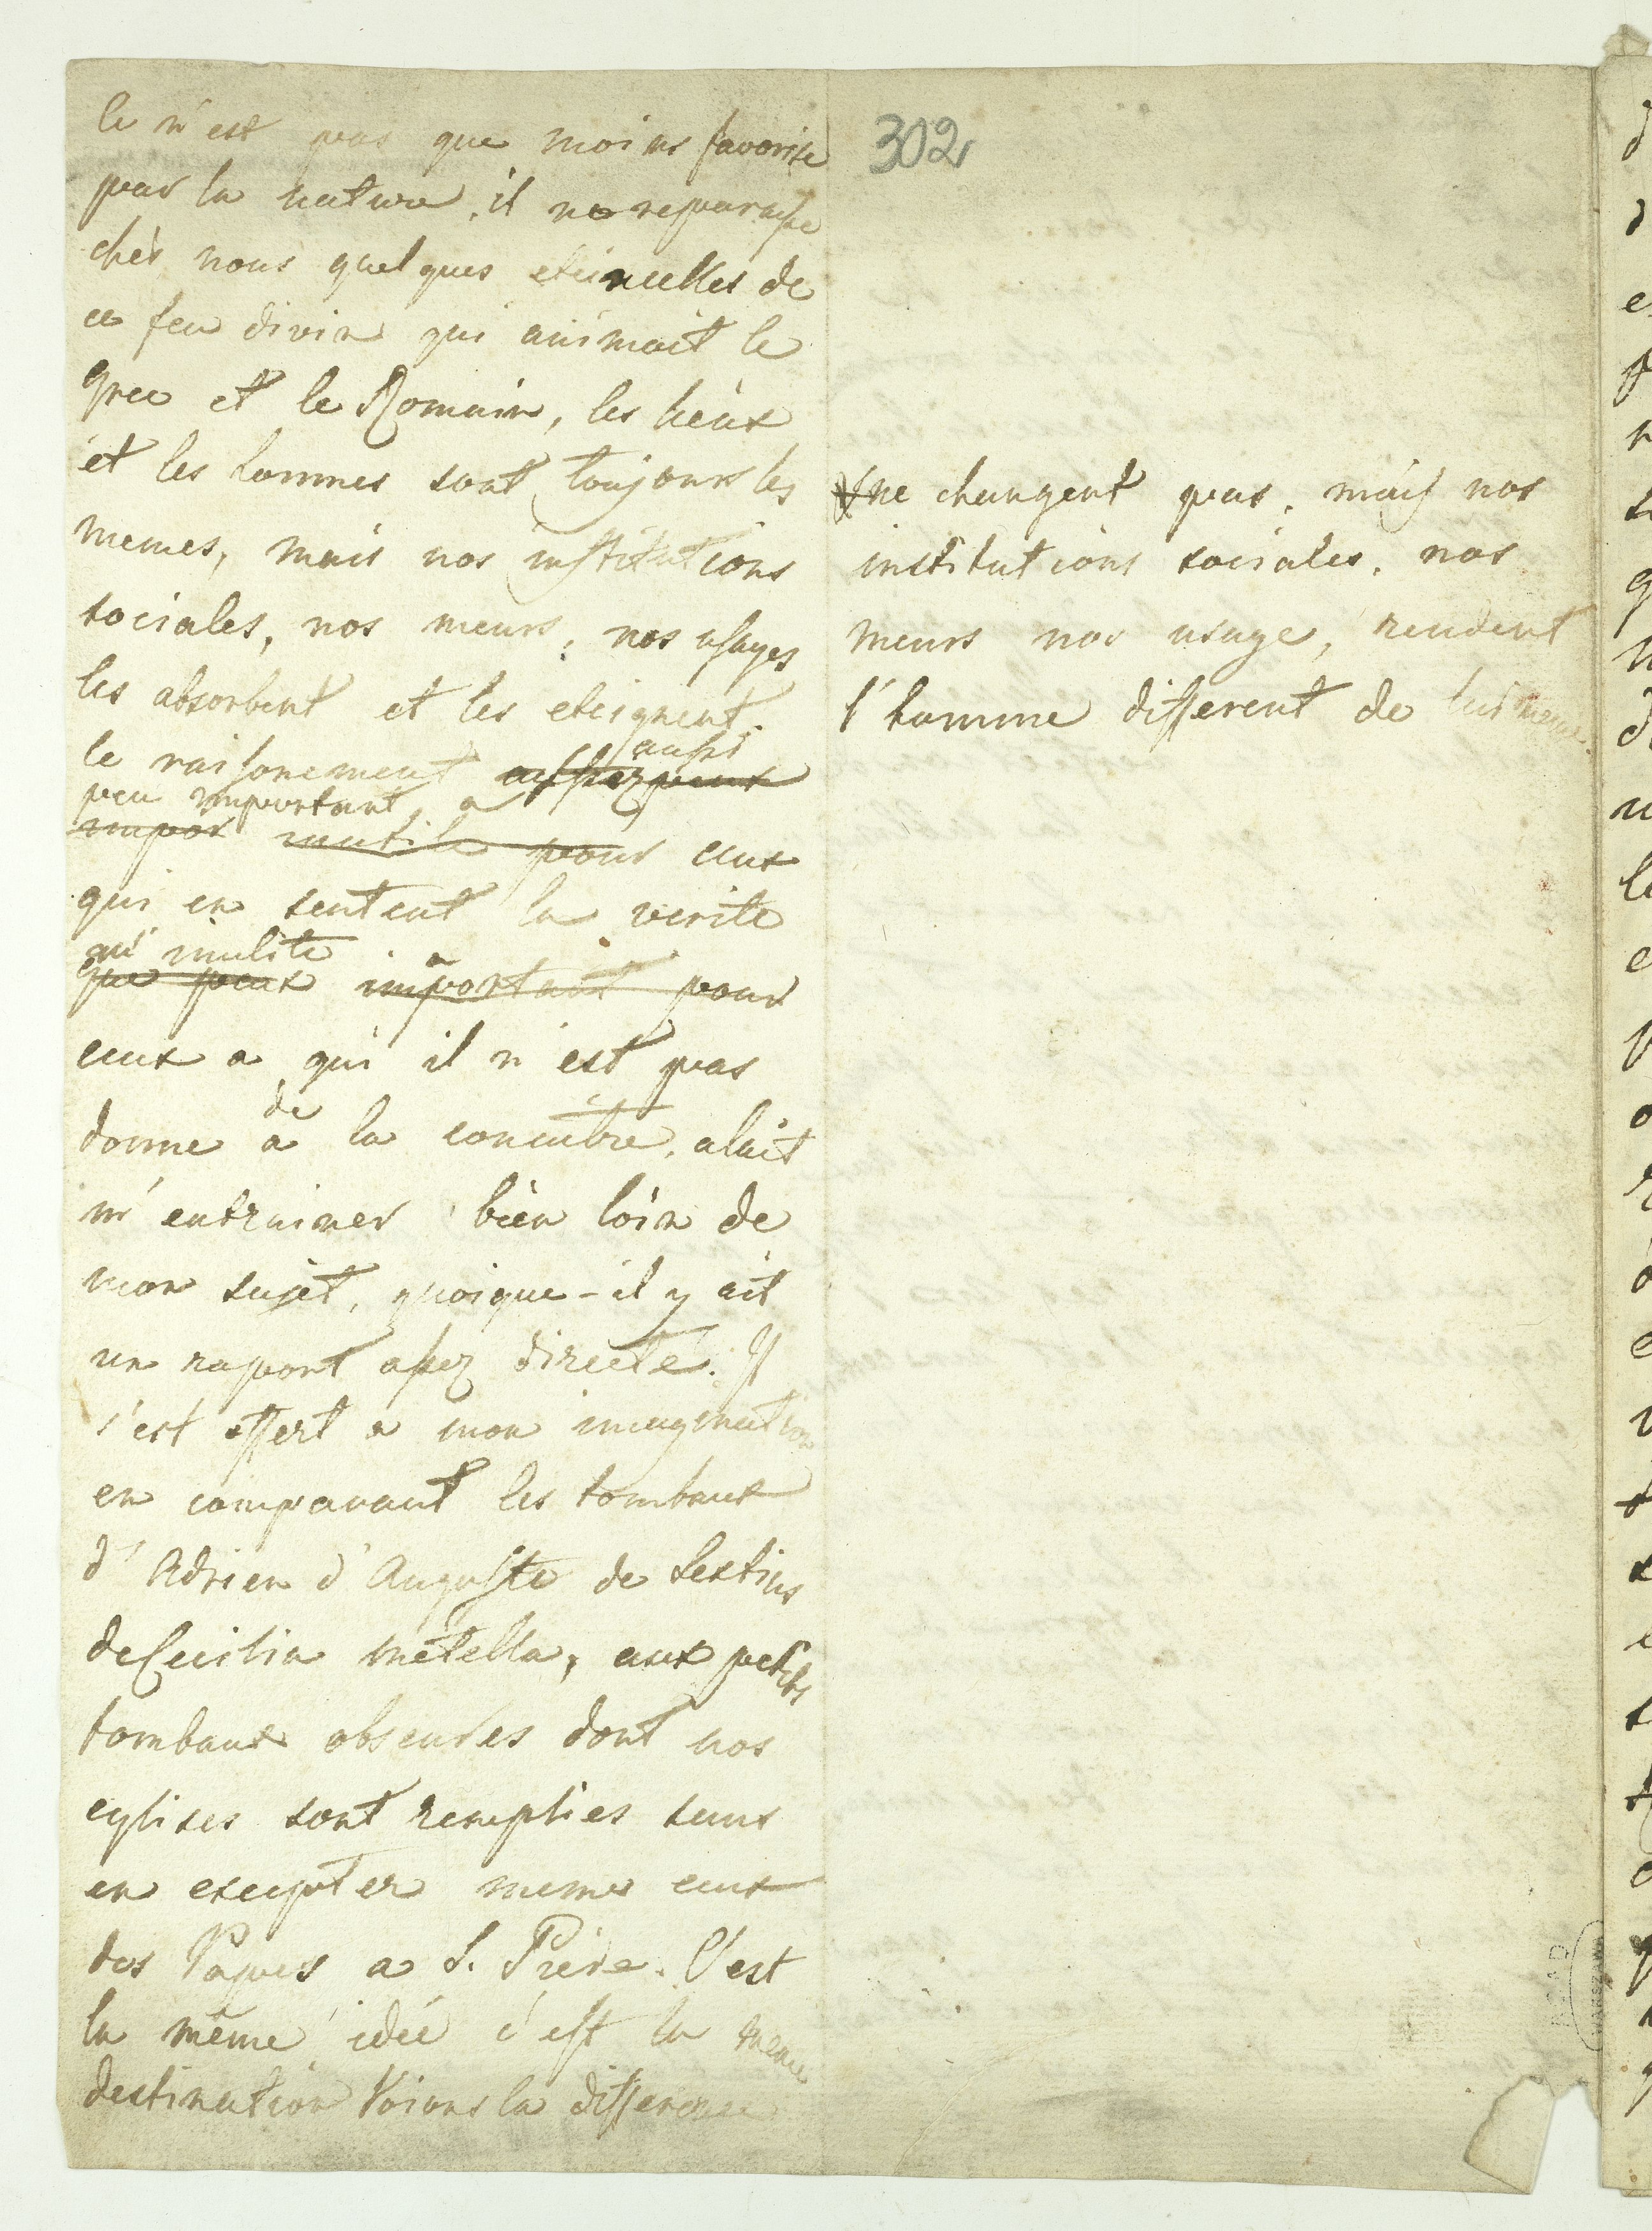 302
Ce n'est pas que moins favorise
par la nature, il ne reparaisse
chés nous quelques etincelles de
ce feu divin qui animait le
grec et le Romain, les lieux
et les hommes sont toujours les
memes, mais nos institutions
sociales, nos meurs, nos usages
les absorbent et les eteignent.
aussi
le raisonement assez peux
peu important a
impor inutile pour ceux
qui en sentent la verite
qu'inulite a
que peux important pour
ceux a qui il n'est pas
de
donne a la conaitre, alait
m'entrainer bien loin de
mon sujet, quoique-il y ait
un raport assez directe. Il
s'est offert a mon imagination
en comparant les tombaux
d'Adrien d'Auguste de Sextius
de Cecilia Metella, aux petits
tombaux obscures dont nos
eglises sont remplies sans
en excepter memes ceux
des Papes a S. Piere. C'est
la même idée c'est la meme
destination Voions la difference
ne changent pas, mais nos
institutions sociales, nos
meurs nos usage, rendent
l'homme different de lui meme.